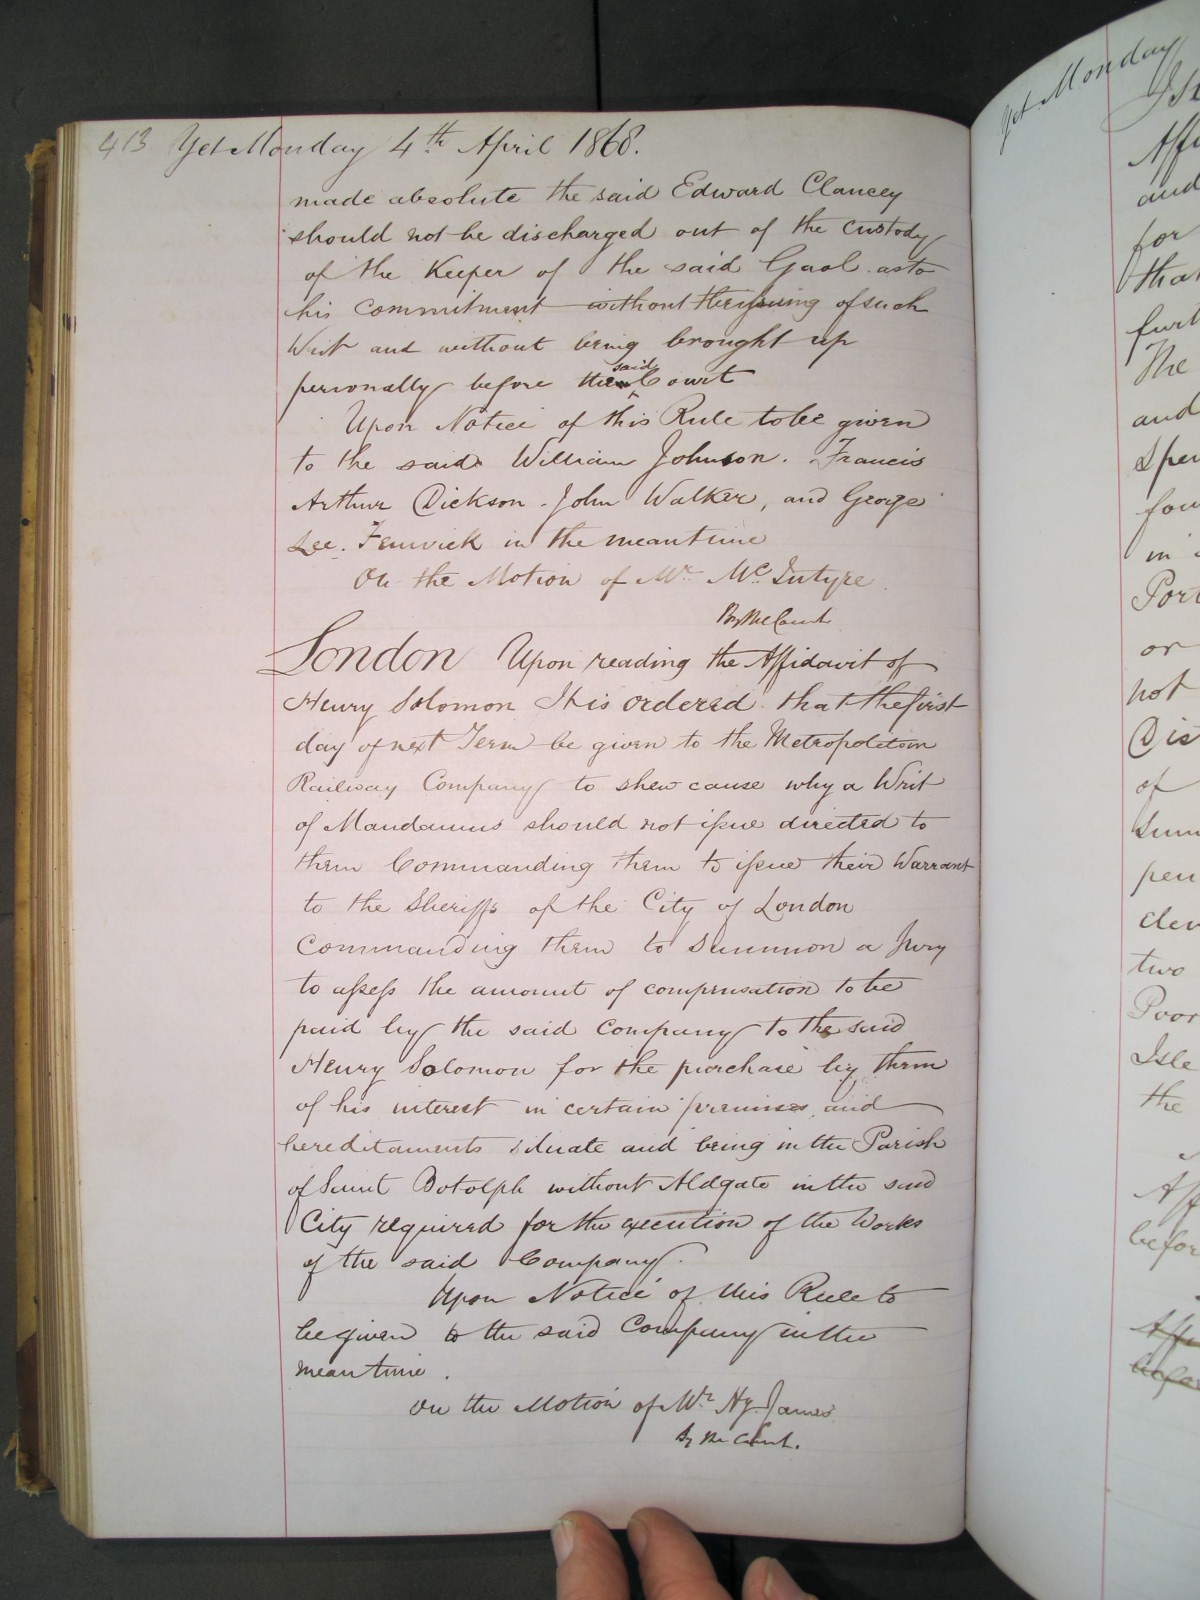 413 Yet Monday 4th April 1868.
made absolute the said Edward Clancey
should not be discharged out of the custody
of the Keeper of the said Gaol as to
his commitment without the issuing of such
Writ and without being brought up
personally before the said Court
Upon Notice of this Rule to be given
to the said William Johnson. Francis
Arthur Dickson. John Walker, and George
Lee. Fenwick in the meantime
On the Motion of Mr. McIntyre.
By the Court
London Upon reading the Affidavit of
Henry Solomon It is ordered that the first
day of next Term be given to the Metropolitan
Railway Company to shew cause why a Writ
of Mandamus should not issue directed to
them Commanding them to issue their Warrant
to the Sheriffs of the City of London
Commanding them to summon a Jury
to assess the amount of compensation to be
paid by the said Company to the said
Henry Solomon for the purchase by them
of his interest in certain premises and
hereditaments situate and being in the Parish
of Saint Botolph without Aldgate in the said
City required for the execution of the Works
of the said Company.
Upon Notice of this Rule to
be given to the said Company in the
meantime.
On the Motion of Mr. Hy. James
By the Court.
Yet Monday
and
for
that
The
and
in
Port
or
not
Dis
of
pen
two
Poor
Isle
the
Aff
befor